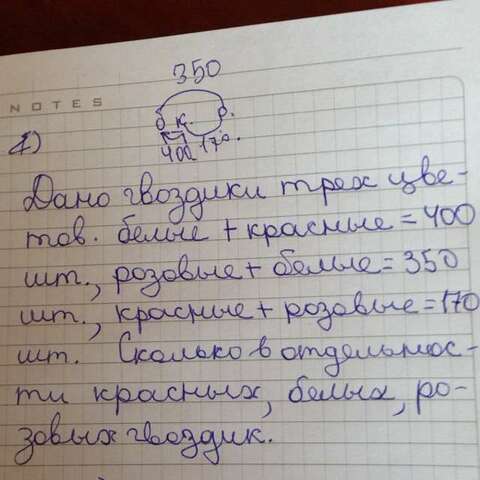 350
NOTES
б к. р.
1) 400 170.
Дано гвоздики трех цве-
тов. белые + красные = 400
шт., розовые + белые = 350
шт., красные + розовые = 170
шт. Сколько в отдельнос-
ти красных, белых, ро-
зовых гвоздик.